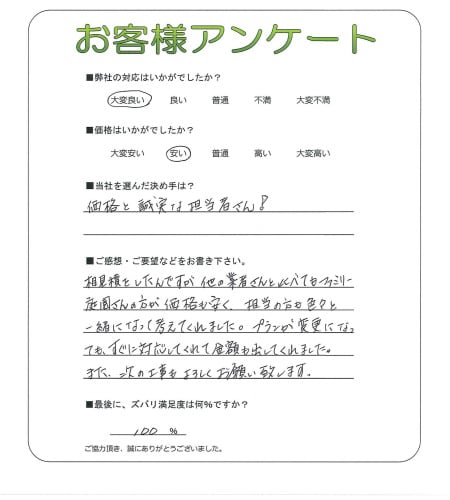 お客様アンケート
■弊社の対応はいかがでしたか?
大変良い 良い 普通 不満 大変不満
■価格はいかがでしたか?
大変安い 安い 普通 高い 大変高い
■当社を選んだ決め手は?
価格と誠実な担当者さん!
■ご感想・ご要望などをお書き下さい。
相見積としたんですが他の業者さんと比べてもファミリー
庭園さんの方が価格も安く、担当の方も色々と
一緒になって考えてくれました。プランが変更になっ
ても、すぐに対応してくれて金額も出してくれました。
また、次の工事もよろしくお願い致します。
■最後に、ズバリ満足度は何%ですか?
100 %
ご協力頂き、誠にありがとうございました。